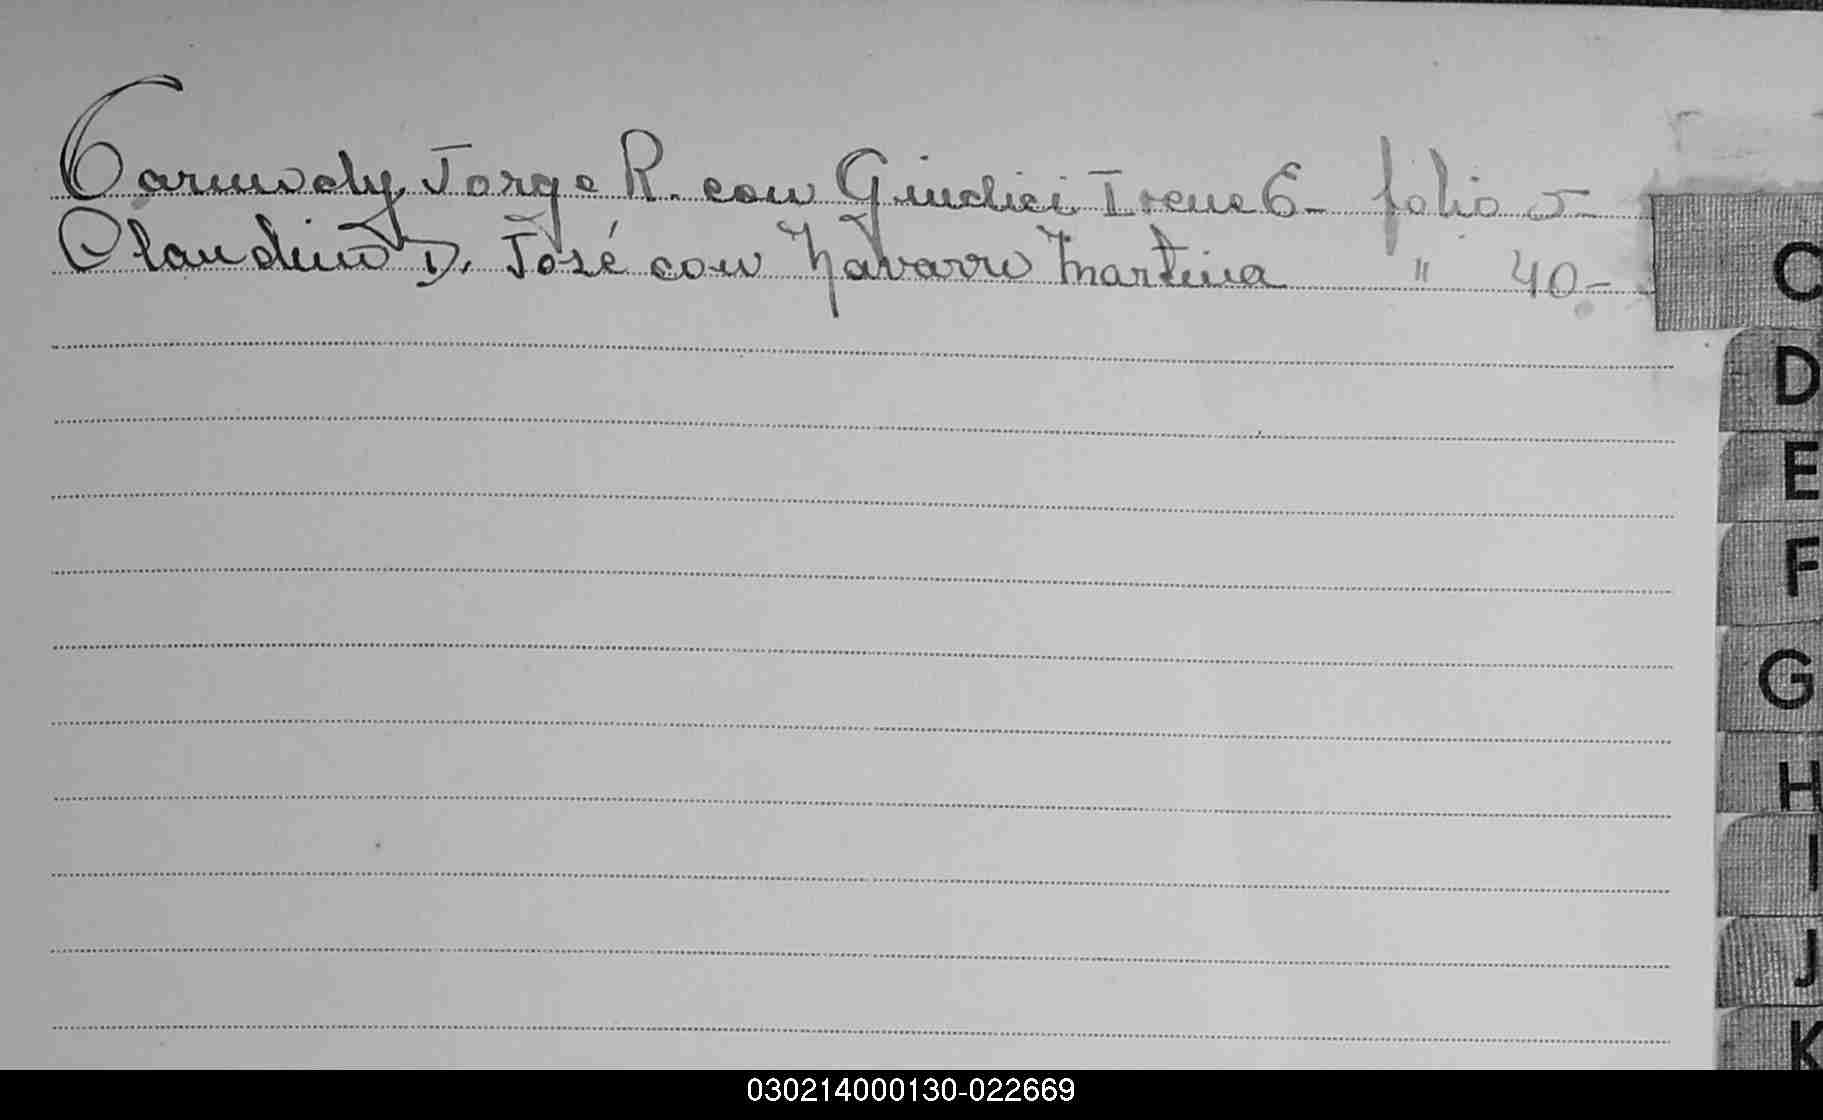 Carmody, Jorge R. con Giudici Irene E- folio 5-
Claudino D. José con Navarro Martina " 40.-
C
D
E
F
G
H
I
J
K
030214000130-022669